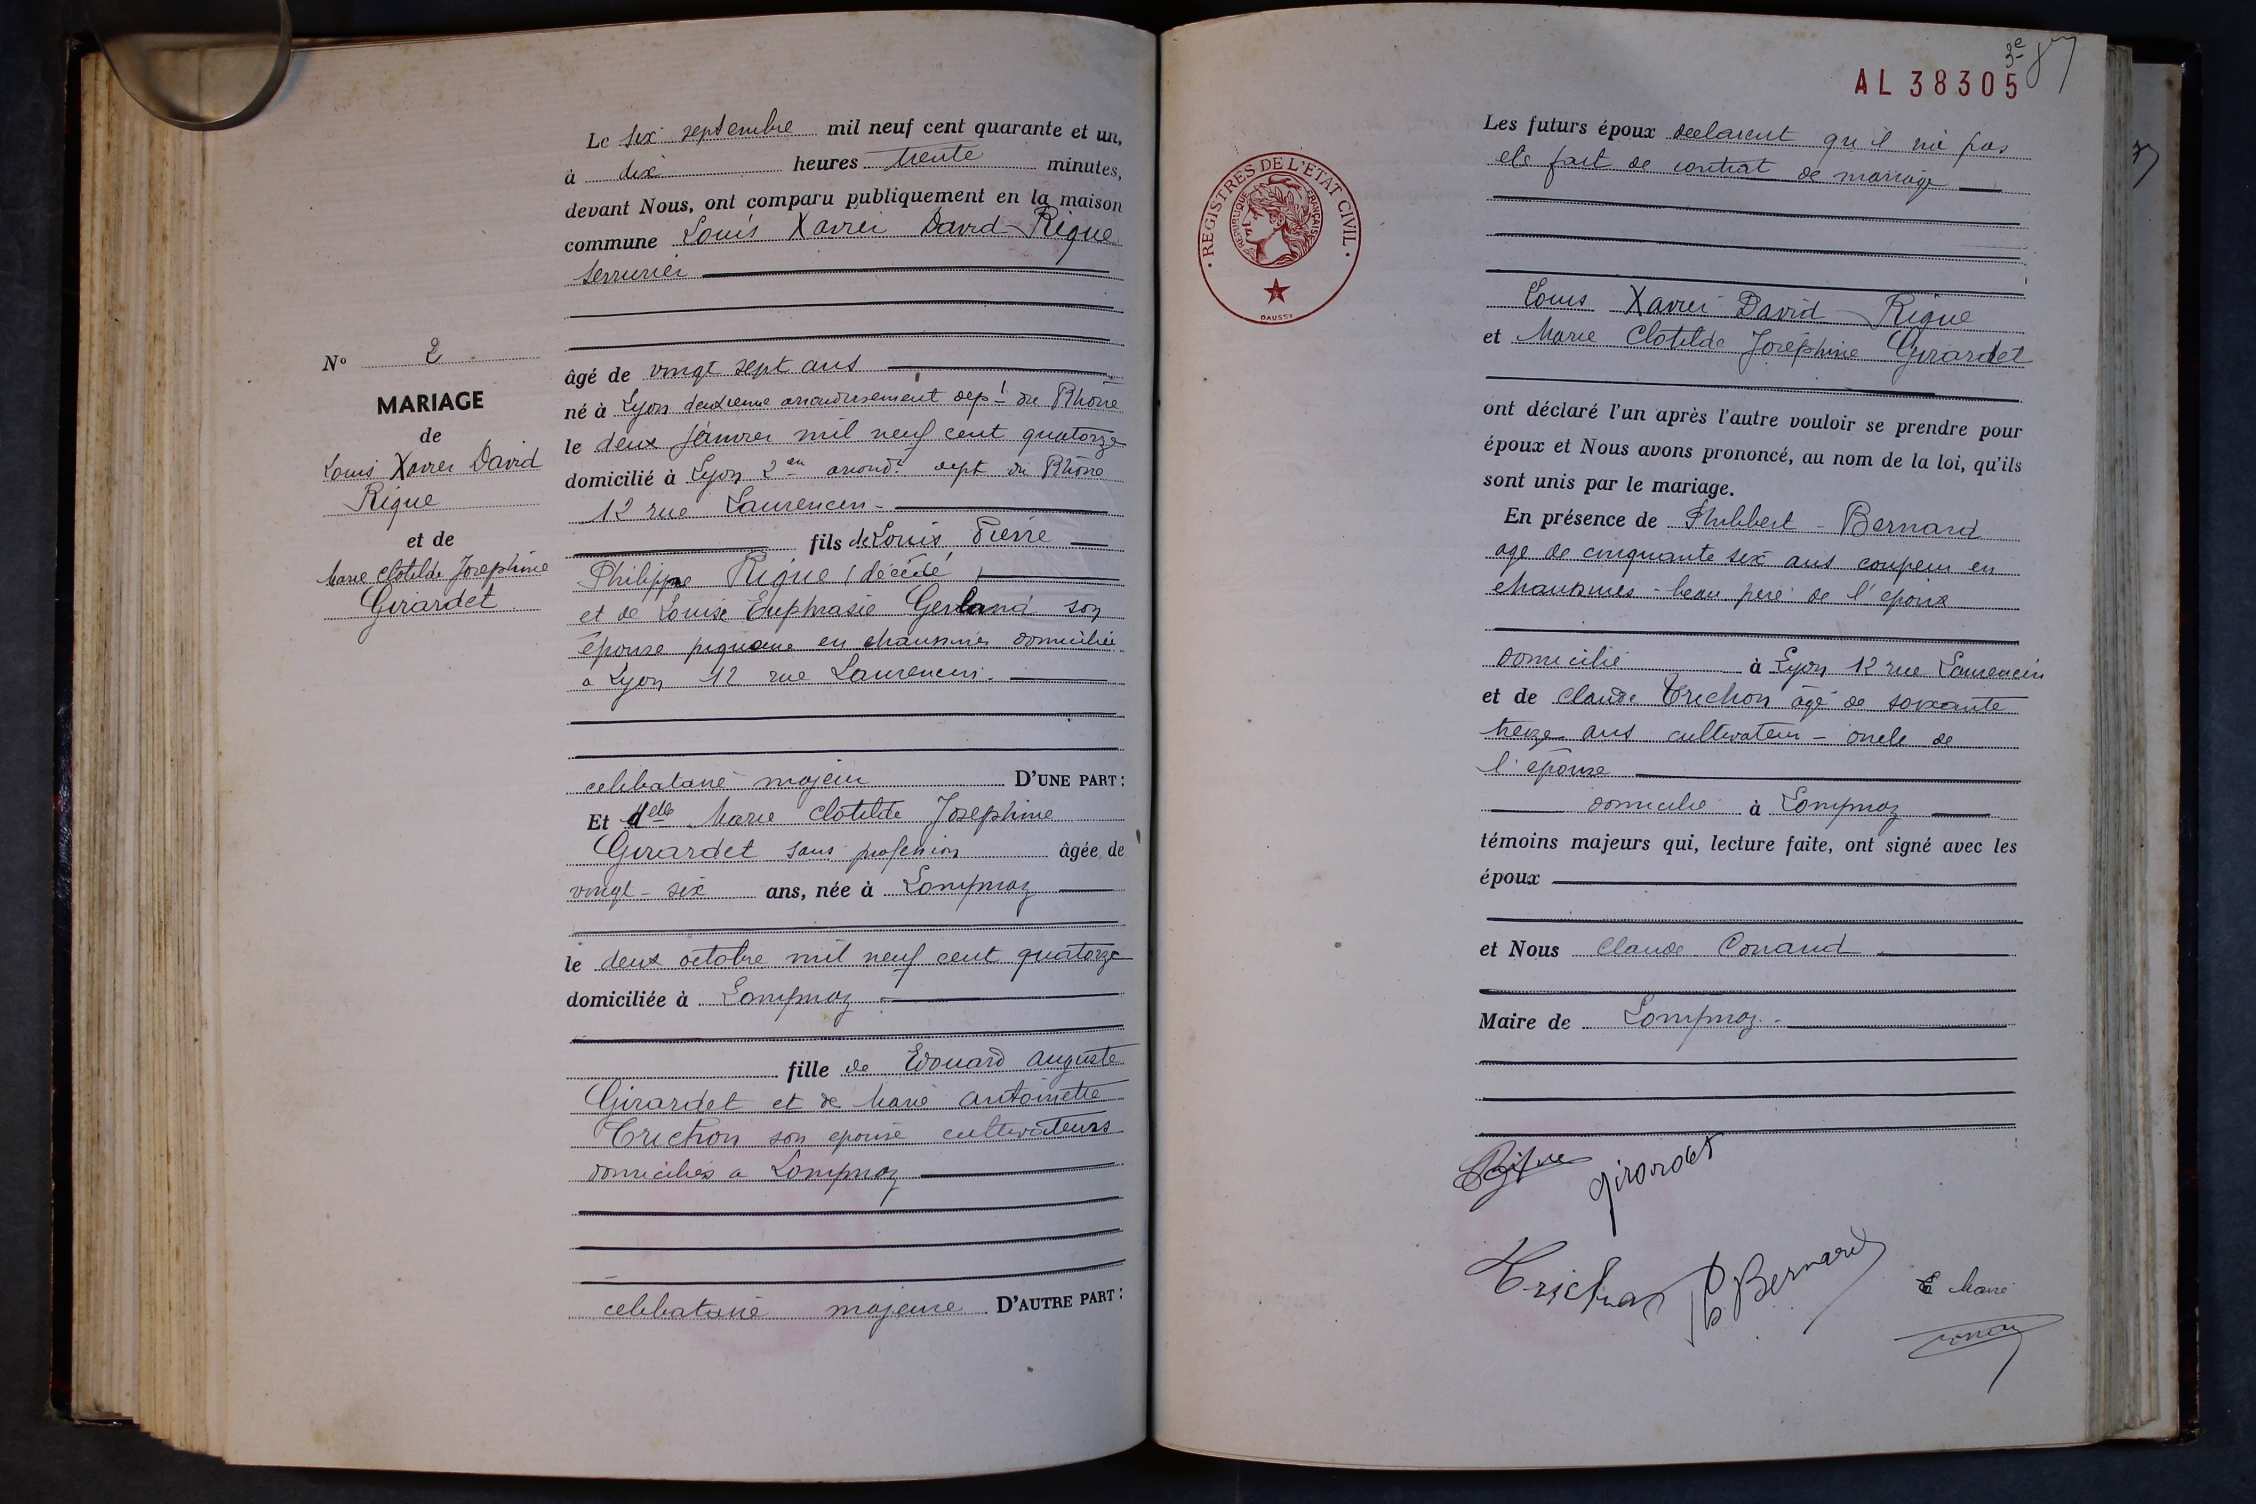 Le six septembre mil neuf cent quarante et un,
à dix heures trente minutes,
devant Nous, ont comparu publiquement en la maison
commune Louis Xavier David Rigue
serrurier
N° 2
MARIAGE
de
Louis Xavier David
Rigue
et de
Marie Clotilde Josephine
Girardet
âgé de vingt sept ans
né à Lyon deuxieme arrondissement dept du Rhône
le deux janvier mil neuf cent quatorze
domicilié à Lyon 2em arrondt dept du Rhône
12 rue Laurencin
fils de Louis Pierre
Philippe Rigue (décédé)
et de Louise Euphrasie Gerland son
épouse piqueuse en chaussures domiciliée
a Lyon 12 rue Laurencin.
celibataire majeur D'UNE PART :
Et Melle Marie Clotilde Josephine
Girardet sans profession âgée de
vingt-six ans, née à Lompnaz
le deux octobre mil neuf cent quatorze
domiciliée à Lompnaz
fille de Edouard Auguste
Girardet et de Marie Antoinette
Trichon son epouse cultivateurs
domicilies a Lompnaz
celibataire majeure D'AUTRE PART :
3e
AL 38305
REGISTRES DE L'ETAT CIVIL
REPUBLIQUE FRANÇAISE
DAUSSY
Les futurs époux declarent qu'il n'a pas
ete fait de contrat de mariage
Louis Xavier David Rigue
et Marie Clotilde Joséphine Girardet
ont déclaré l'un après l'autre vouloir se prendre pour
époux et Nous avons prononcé, au nom de la loi, qu'ils
sont unis par le mariage.
En présence de Philibert Bernard
age de cinquante six ans coupeur en
chaussures - beau pere de l'epoux
domicilié à Lyon 12 rue Laurencin
et de Claude Trichon âgé de soixante
treize ans cultivateur - oncle de
l'épouse
domicilié à Lompnaz
témoins majeurs qui, lecture faite, ont signé avec les
époux
et Nous Claude Conand
Maire de Lompnaz.
Rigue
Girardet
Trichon
Bernard
Le Maire
Conand